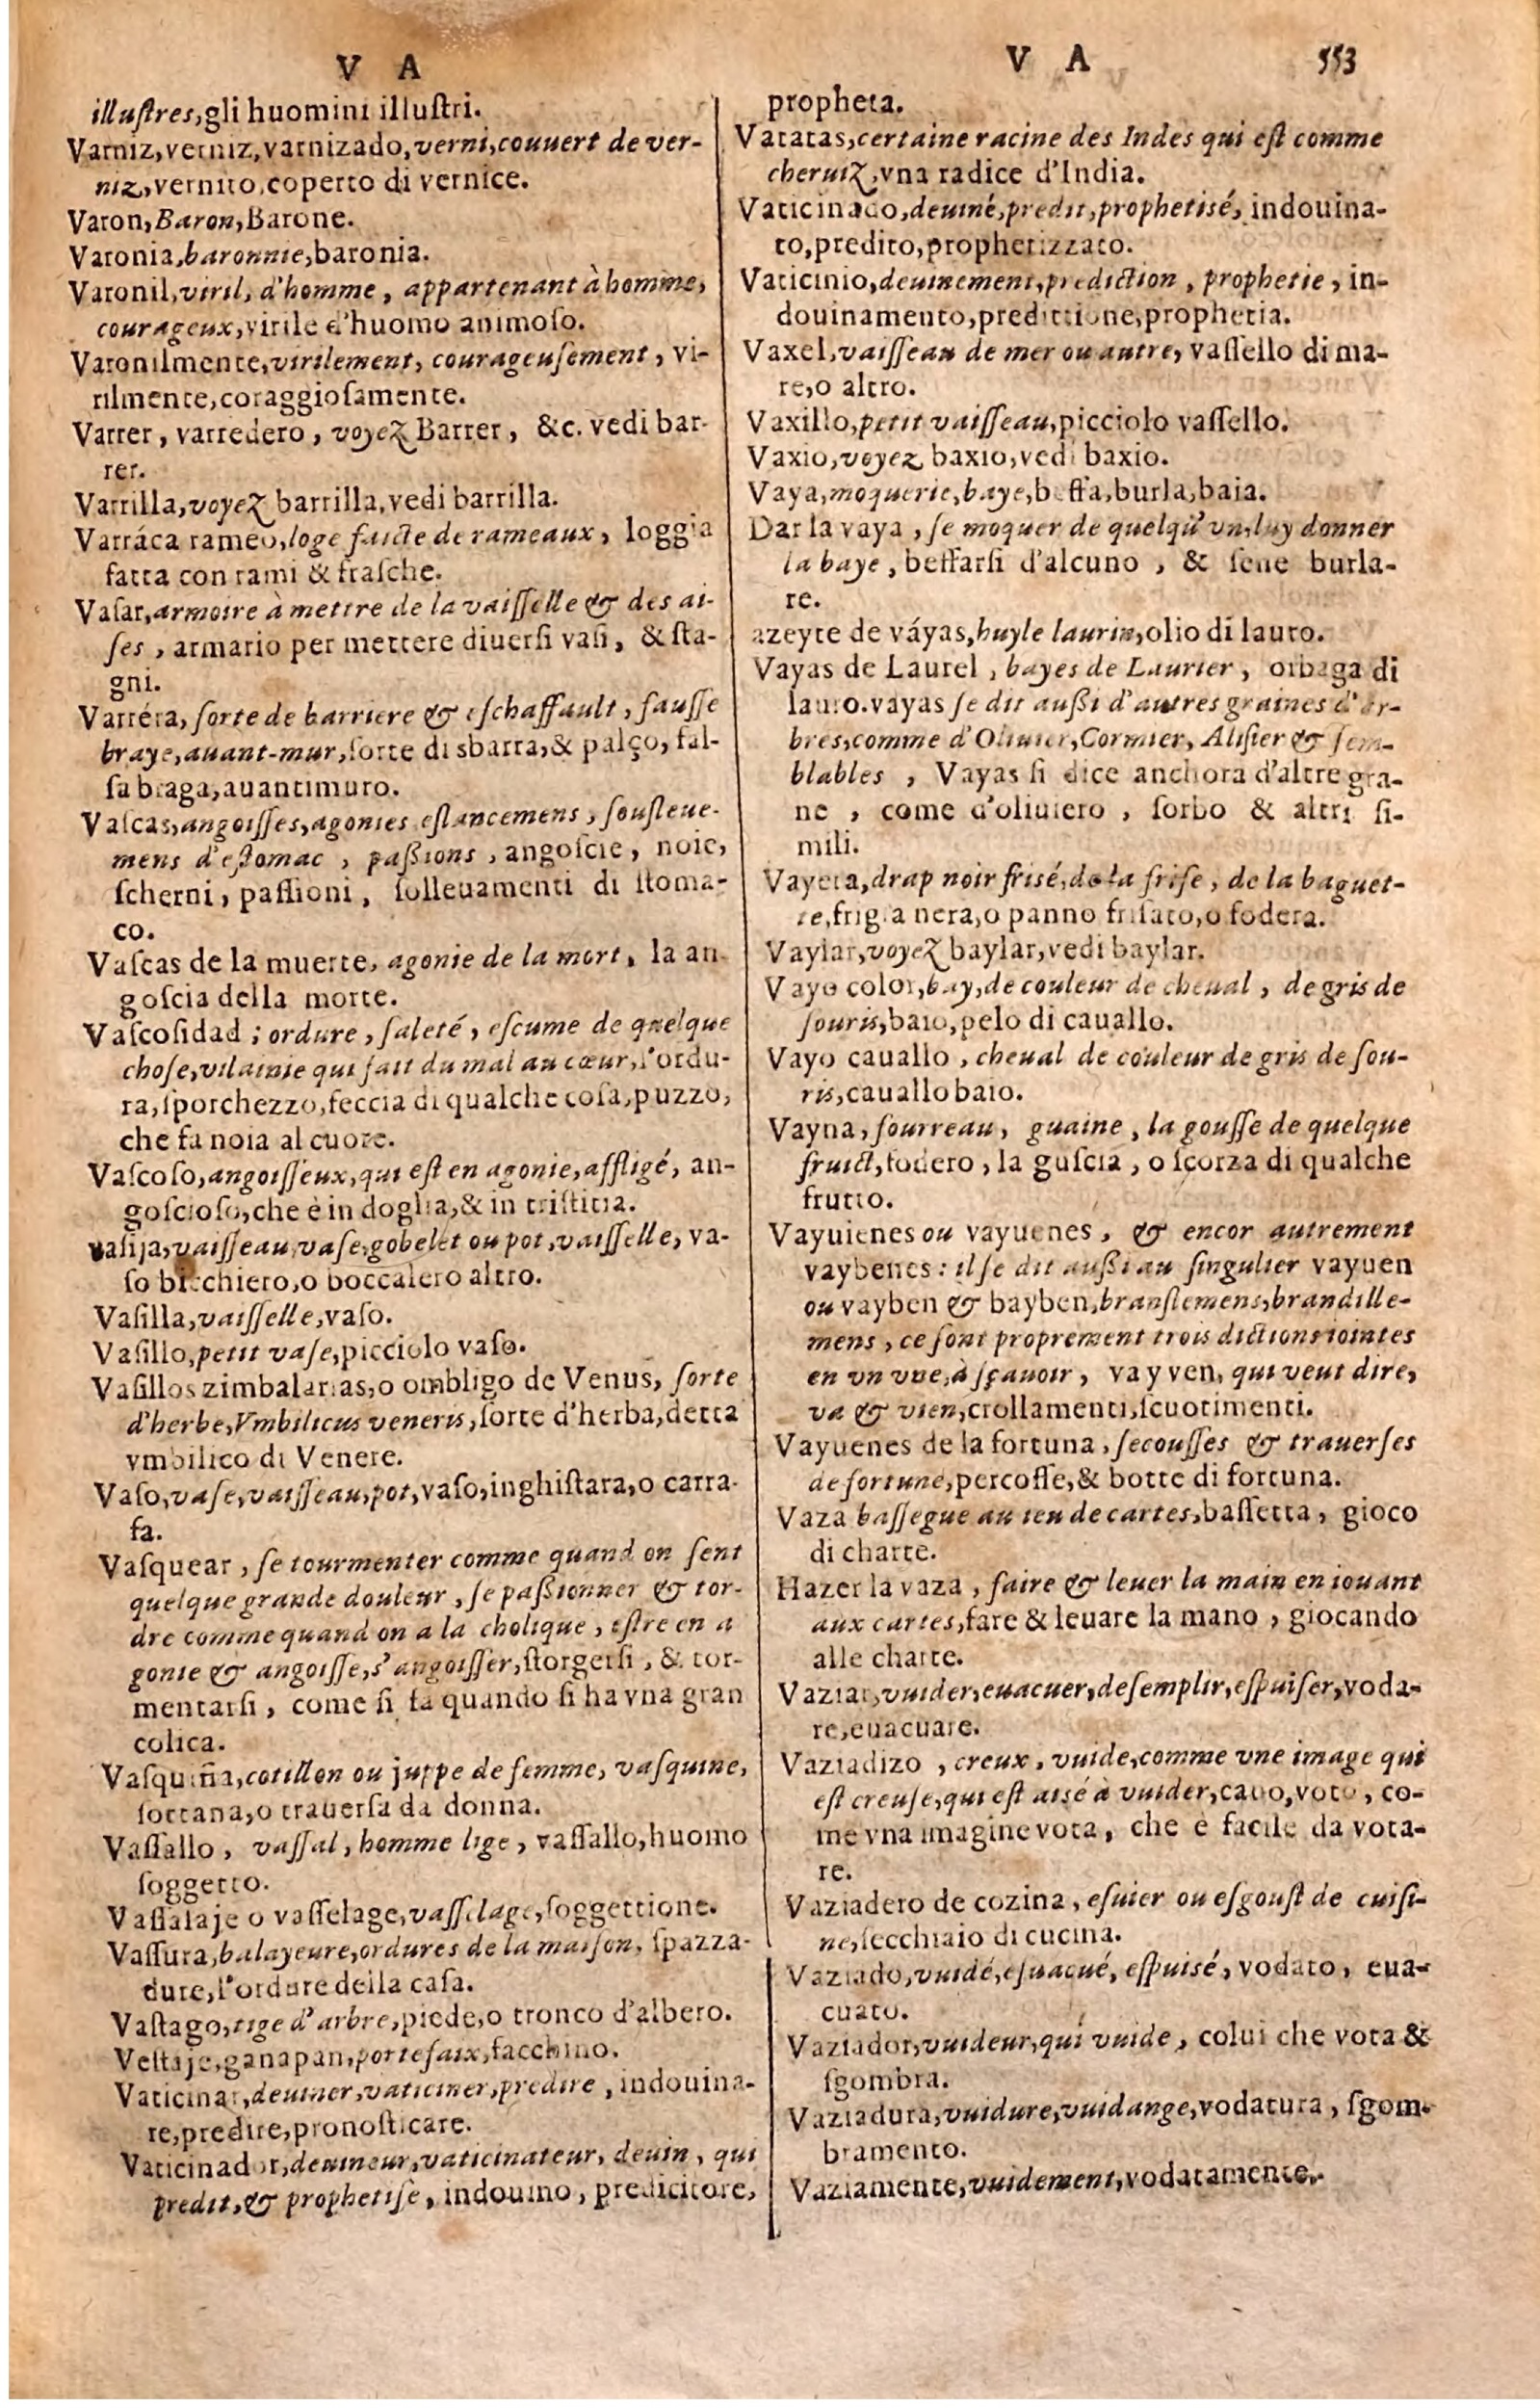 V A
illuſtres, gli huomini illuſtri.
Varniz, verniz, varnizado, verni, couuert de ver-
niz, vernito, coperto di vernice.
Varon, Baron, Barone.
Varonia, baronnie, baronia.
Varonil, viril, d'homme, appartenant à homme,
courageux, virile d'huomo animoſo.
Varonilmente, virilement, courageuſement, vi-
rilmente, coraggioſamente.
Varrer, varredero, voyez Barrer, &c. vedi bar-
rer.
Varrilla, voyez barrilla, vedi barrilla.
Varráca rameo, loge faicte de rameaux, loggia
fatta con rami & fraſche.
Vaſar, armoire à mettre de la vaiſſelle & des ai-
ſes, armario per mettere diuerſi vaſi, & ſta-
gni.
Varréra, ſorte de barriere & eſchaffault, fauſſe
braye, auant-mur, ſorte di sbarra, & palço, fal-
ſa braga, auantimuro.
Vaſcas, angoiſſes, agonies eſlancemens, ſouſleue-
mens d'eſtomac, paſſions, angoſcie, noie,
ſcherni, paſſioni, ſolleuamenti di ſtoma-
co.
Vaſcas de la muerte, agonie de la mort, la an-
goſcia della morte.
Vaſcoſidad; ordure, ſaleté, eſcume de quelque
choſe, vilainie qui fait du mal au cœur, l'ordu-
ra, ſporchezzo, feccia di qualche coſa, puzzo,
che fa noia al cuore.
Vaſcoſo, angoiſſeux, qui eſt en agonie, affligé, an-
goſcioſo, che è in doglia, & in triſtitia.
vaſija, vaiſſeau, vaſe, gobelet ou pot, vaiſſelle, va-
ſo bicchiero, o boccalero altro.
Vaſilla, vaiſſelle, vaſo.
Vaſillo, petit vaſe, picciolo vaſo.
Vaſillos zimbalarias, o ombligo de Venus, ſorte
d'herbe, Vmbilicus veneris, ſorte d'herba, detta
vmbilico di Venere.
Vaſo, vaſe, vaiſſeau, pot, vaſo, inghiſtara, o carra-
fa.
Vaſquear, ſe tourmenter comme quand on ſent
quelque grande douleur, ſe paſſionner & tor-
dre comme quand on a la cholique, eſtre en a
gonie & angoiſſe, s'angoiſſer, ſtorgerſi, & tor-
mentarſi, come ſi fa quando ſi ha vna gran
colica.
Vaſquiña, cotillon ou juppe de femme, vaſquine,
ſottana, o trauerſa da donna.
Vaſſallo, vaſſal, homme lige, vaſſallo, huomo
ſoggetto.
Vaſſalaje o vaſſelage, vaſſelage, ſoggettione.
Vaſſura, balayeure, ordures de la maiſon, ſpazza-
dure, l'ordure della caſa.
Vaſtago, tige d'arbre, piede, o tronco d'albero.
Veſtaje, ganapan, portefaix, facchino.
Vaticinar, deuiner, vaticiner, predire, indouina-
re, predire, pronoſticare.
Vaticinador, deuineur, vaticinateur, deuin, qui
predit, & prophetiſe, indouino, predicitore,
V A 553
propheta.
Vatatas, certaine racine des Indes qui eſt comme
cheruiz, vna radice d'India.
Vaticinado, deuiné, predit, prophetisé, indouina-
to, predito, prophetizzato.
Vaticinio, deuinement, prediction, prophetie, in-
douinamento, predittione, prophetia.
Vaxel, vaiſſeau de mer ou autre, vaſſello di ma-
re, o altro.
Vaxillo, petit vaiſſeau, picciolo vaſſello.
Vaxio, voyez baxio, vedi baxio.
Vaya, moquerie, baye, beffa, burla, baia.
Dar la vaya, ſe moquer de quelqu'vn, luy donner
la baye, beffarſi d'alcuno, & ſene burla-
re.
azeyte de váyas, huyle laurin, olio di lauro.
Vayas de Laurel, bayes de Laurier, orbaga di
lauro. vayas ſe dit auſſi d'autres graines d'ar-
bres, comme d'Oliuier, Cormier, Aliſier & ſem-
blables, Vayas ſi dice anchora d'altre gra-
ne, come d'oliuiero, ſorbo & altri ſi-
mili.
Vayeta, drap noir friſé, de la friſe, de la baguet-
te, frigia nera, o panno friſato, o fodera.
Vaylar, voyez baylar, vedi baylar.
Vayo color, bay, de couleur de cheual, de gris de
ſouris, baio, pelo di cauallo.
Vayo cauallo, cheual de couleur de gris de ſou-
ris, cauallo baio.
Vayna, fourreau, guaine, la gouſſe de quelque
fruict, fodero, la guſcia, o ſçorza di qualche
frutto.
Vayuienes ou vayuenes, & encor autrement
vaybenes: il ſe dit auſſi au ſingulier vayuen
ou vayben & bayben, branſlemens, brandille-
mens, ce ſont proprement trois dictions iointes
en vn vne, à ſçauoir, va y ven, qui veut dire,
va & vien, crollamenti, ſcuotimenti.
Vayuenes de la fortuna, ſecouſſes & trauerſes
de fortune, percoſſe, & botte di fortuna.
Vaza baſſegue au ieu de cartes, baſſetta, gioco
di charte.
Hazer la vaza, faire & leuer la main en iouant
aux cartes, fare & leuare la mano, giocando
alle charte.
Vaziar, vuider, euacuer, deſemplir, eſpuiſer, voda-
re, euacuare.
Vaziadizo, creux, vuide, comme vne image qui
eſt creuſe, qui eſt aisé à vuider, cauo, voto, co-
me vna imagine vota, che è facile da vota-
re.
Vaziadero de cozina, eſuier ou eſgouſt de cuiſi-
ne, ſecchiaio di cucina.
Vaziado, vuidé, eſuacué, eſpuisé, vodato, eua-
cuato.
Vaziador, vuideur, qui vuide, colui che vota &
ſgombra.
Vaziadura, vuidure, vuidange, vodatura, ſgom-
bramento.
Vaziamente, vuidement, vodatamente.